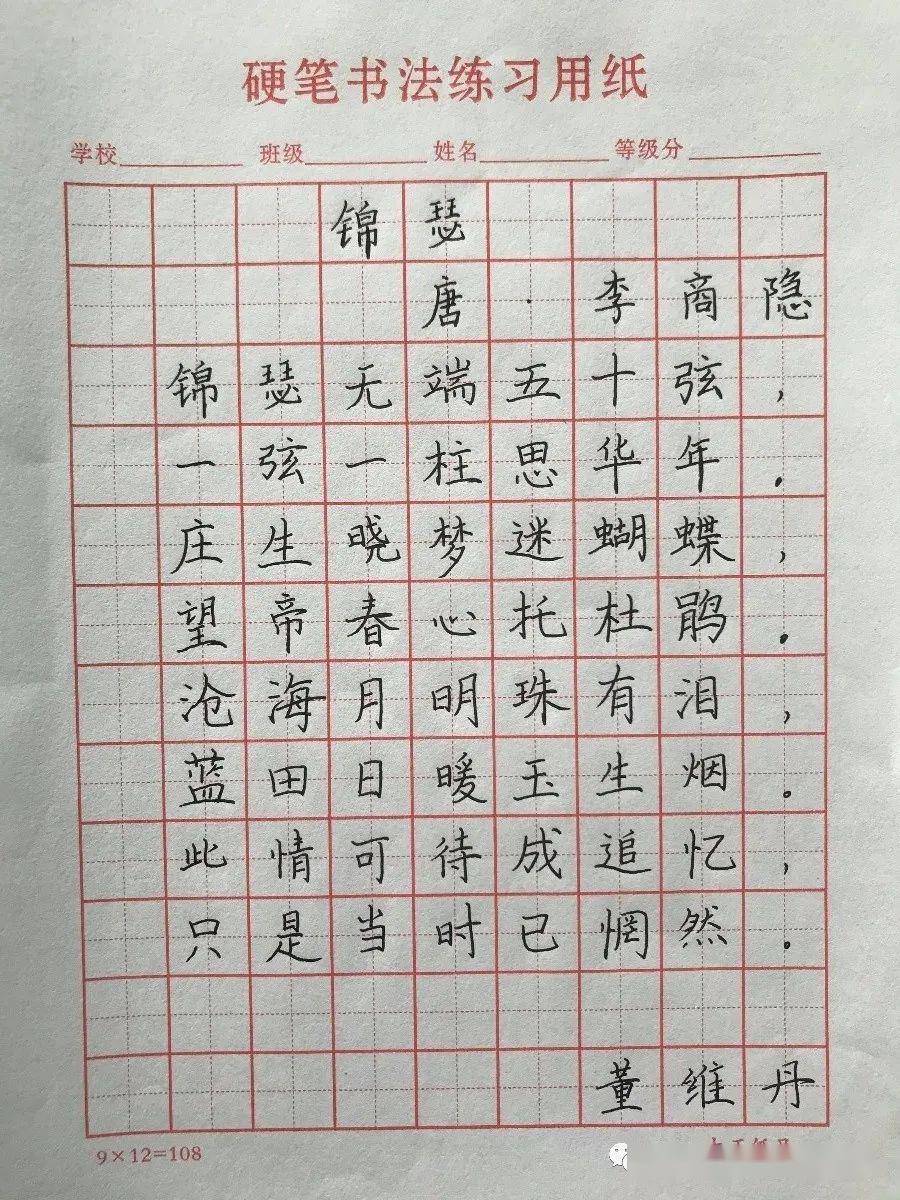 硬笔书法练习用纸
学校 班级 姓名 等级分
锦瑟
唐·李商隐
锦瑟无端五十弦,
一弦一柱思华年.
庄生晓梦迷蝴蝶,
望帝春心托杜鹃.
沧海月明珠有泪,
蓝田日暖玉生烟。
此情可待成追忆,
只是当时已惘然。
董维丹
9×12=108